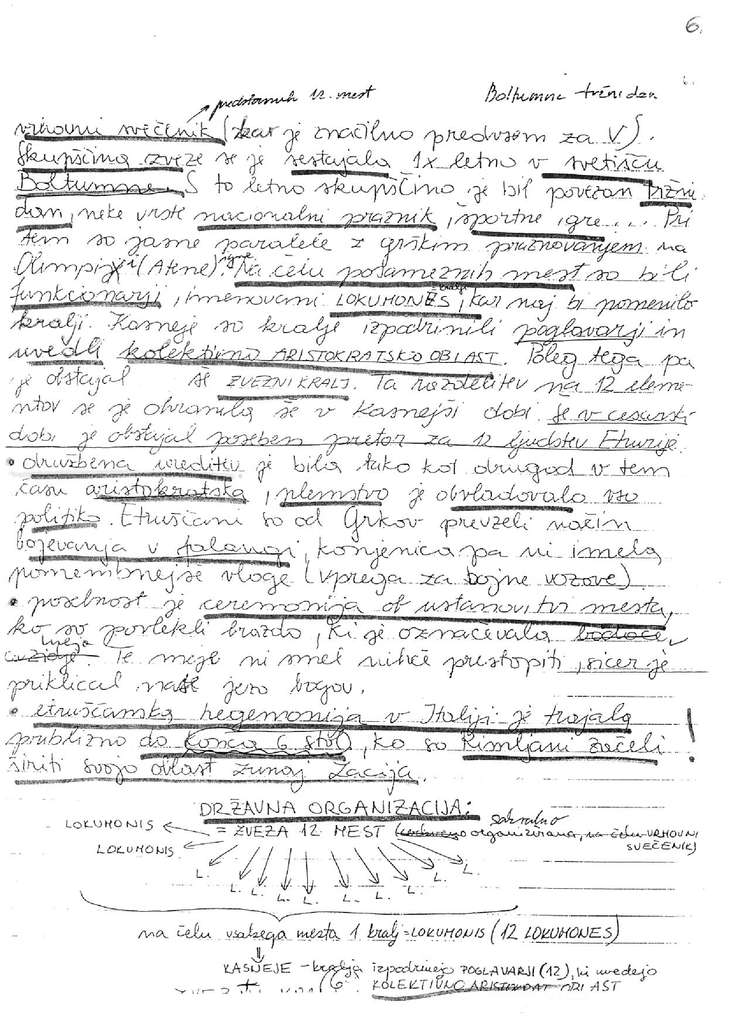 6.
predstavnik 12. mest
Boltumne tržni dan
vrhovni svečenik (kar je značilno predvsem za V).
Skupščina zveze se je sestajala 1x letno v svetišču
Boltumne. S to letno skupščino je bil povezan tržni
dan, neke vrste nacionalni praznik, športne igre... Pri
tem so jasne paralele z grškim praznovanjem na
Olimpiji (Atene). Na čelu posameznih mest so bili
funkcionarji, imenovani LOKUMONES, kar naj bi pomenilo
kralji. Kasneje so kralje izpodrinili poglavarji in
uvedli kolektivno ARISTOKRATSKO OBLAST. Poleg tega pa
je obstajal še ZVEZNI KRALJ. Ta razdelitev na 12 eleme-
ntov se je ohranila še v kasnejši dobi še v cesarski
dobi je obstajal poseben pretor za 12 ljudstev Etrurije.
• družbena ureditev je bila tako kot drugod v tem
času aristokratska, plemstvo je obvladovalo vso
politiko. Etruščani so od Grkov prevzeli način
bojevanja v falangi, konjenica pa ni imela
pomembnejše vloge (vprega za bojne vozove).
• posebnost je ceremonija ob ustanovitvi mesta,
ko so povlekli brazdo, ki je označevala bodoče
meja
obzidje. Te meje ni smel nihče prestopiti, sicer je
priklical nase jezo bogov.
• etruščanska hegemonija v Italiji je trajala
približno do konca 6. stol, ko so Rimljani začeli !
širiti svojo oblast zunaj Lacija.
DRŽAVNA ORGANIZACIJA:
sakralno
LOKUMONIS = ZVEZA 12 MEST (organizirana, na čelu VRHOVNI
LOKUMONIS SVEČENIK)
L. L. L. L. L. L. L. L. L. L.
na čelu vsakega mesta 1 kralj = LOKUMONIS (12 LOKUMONES)
KASNEJE - kralja izpodrinejo POGLAVARJI (12), ki uvedejo
KOLEKTIVNO ARISTOKRAT. OBLAST